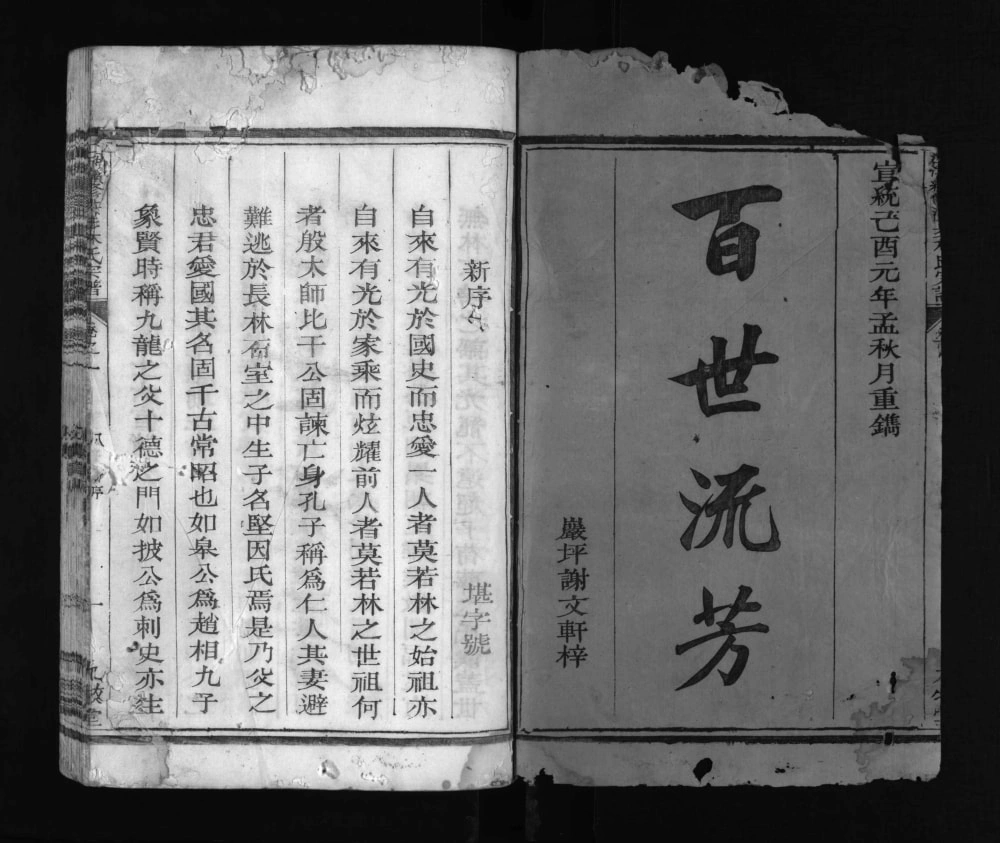 宣統己酉元年孟秋月重鐫
百世流芳
巖坪謝文軒梓
新序 堪字號
自來有光於國史而忠愛一人者莫若林之始祖亦
自來有光於家乘而炫耀前人者莫若林之世祖何
者殷太師比干公固諫亡身孔子稱爲仁人其妻避
難逃於長林石室之中生子名堅因氏焉是乃父之
忠君愛國其名固千古常昭也如皋公爲趙相九子
象賢時稱九龍之父十德之門如披公爲刺史亦生